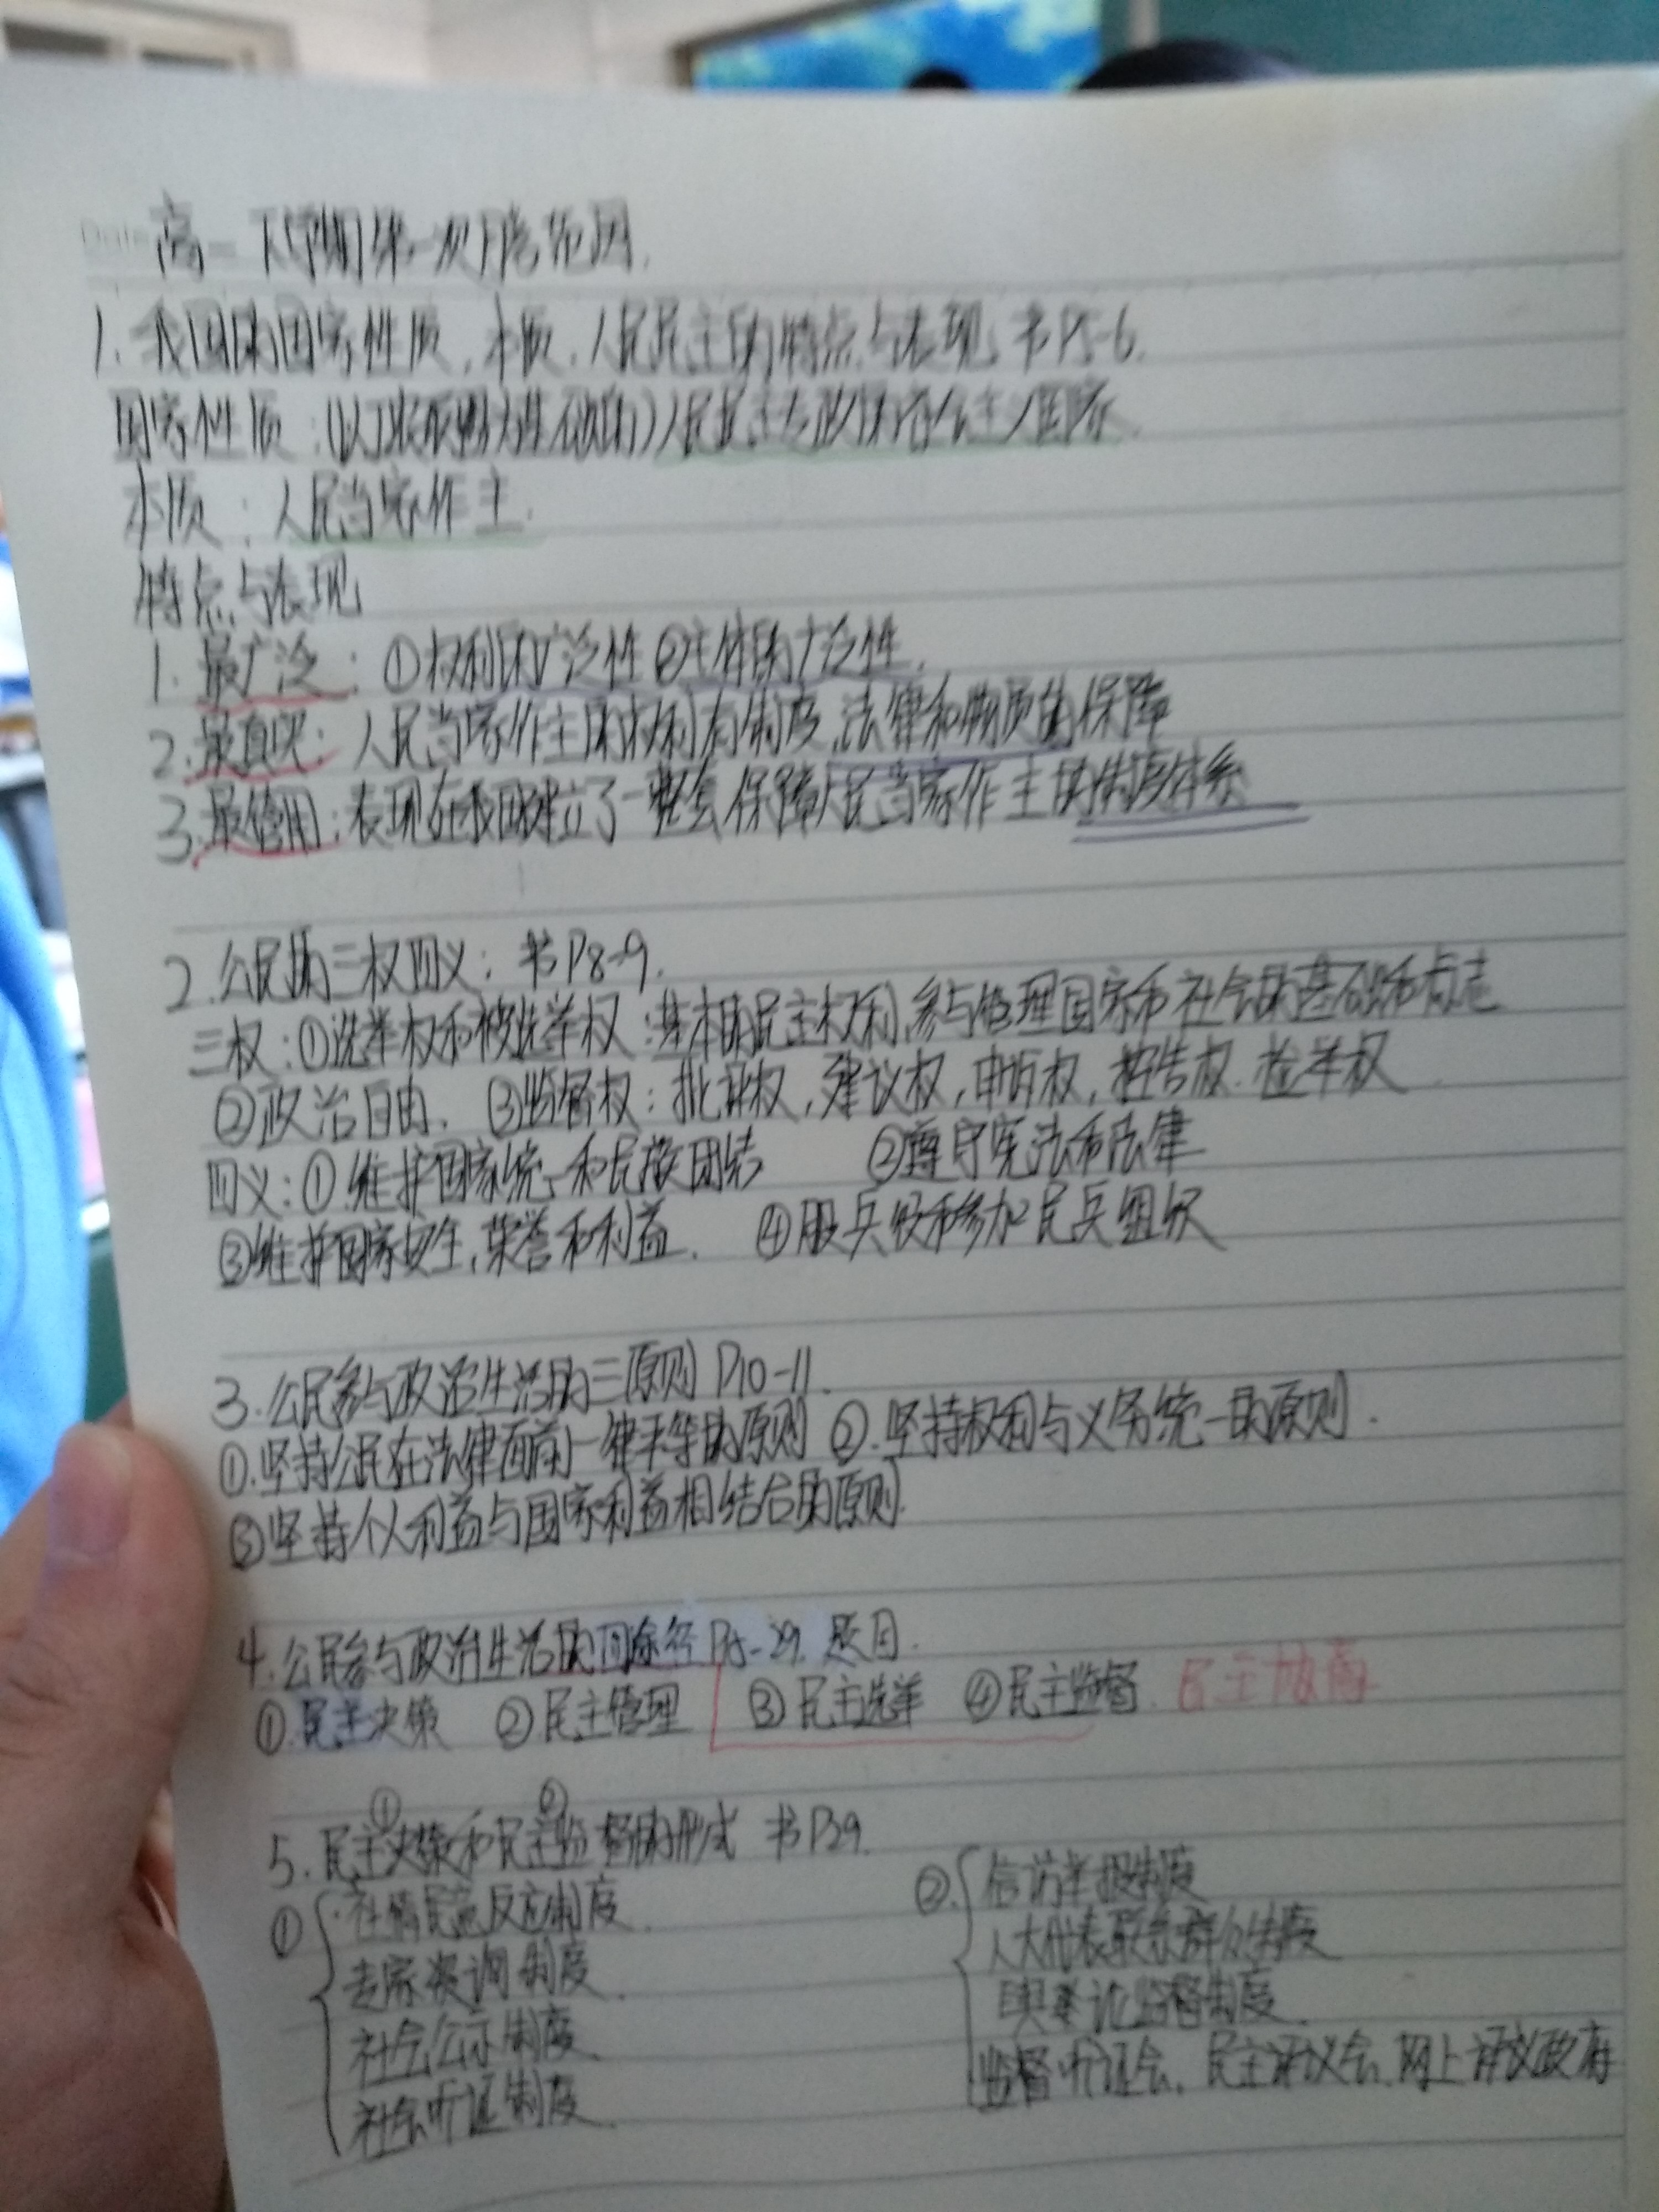 高一下学期第一次月考范围.
1. 我国的国家性质, 本质, 人民民主的特点与表现 书P5-6.
国家性质:(以工农联盟为基础的)人民民主专政的社会主义国家.
本质: 人民当家作主.
特点与表现
1. 最广泛: ①权利的广泛性 ②主体的广泛性.
2. 最真实: 人民当家作主的权利有制度、法律和物质的保障
3. 最管用: 表现在我国建立了一整套保障人民当家作主的制度体系
2. 公民的三权四义: 书P8-9.
三权: ①选举权和被选举权: 基本的民主权利, 参与管理国家和社会的基础和标志
②政治自由. ③监督权: 批评权, 建议权, 申诉权, 控告权. 检举权
四义: ①维护国家统一和民族团结 ②遵守宪法和法律
③维护国家安全, 荣誉和利益. ④服兵役和参加民兵组织
3. 公民参与政治生活的三原则 P10-11.
①.坚持公民在法律面前一律平等的原则 ②.坚持权利与义务统一的原则.
③坚持个人利益与国家利益相结合的原则.
4. 公民参与政治生活的四途径 P15-29. 题目.
①民主决策 ②民主管理 ③民主选举 ④民主监督. 民主
① ②
5. 民主决策和民主监督的形式 书P29.
① 社情民意反应制度.
专家咨询制度.
社会公示制度.
社会听证制度.
②. 信访举报制度
人大代表联系群众制度
舆论监督制度.
监督听证会、民主评议会、网上评议政府